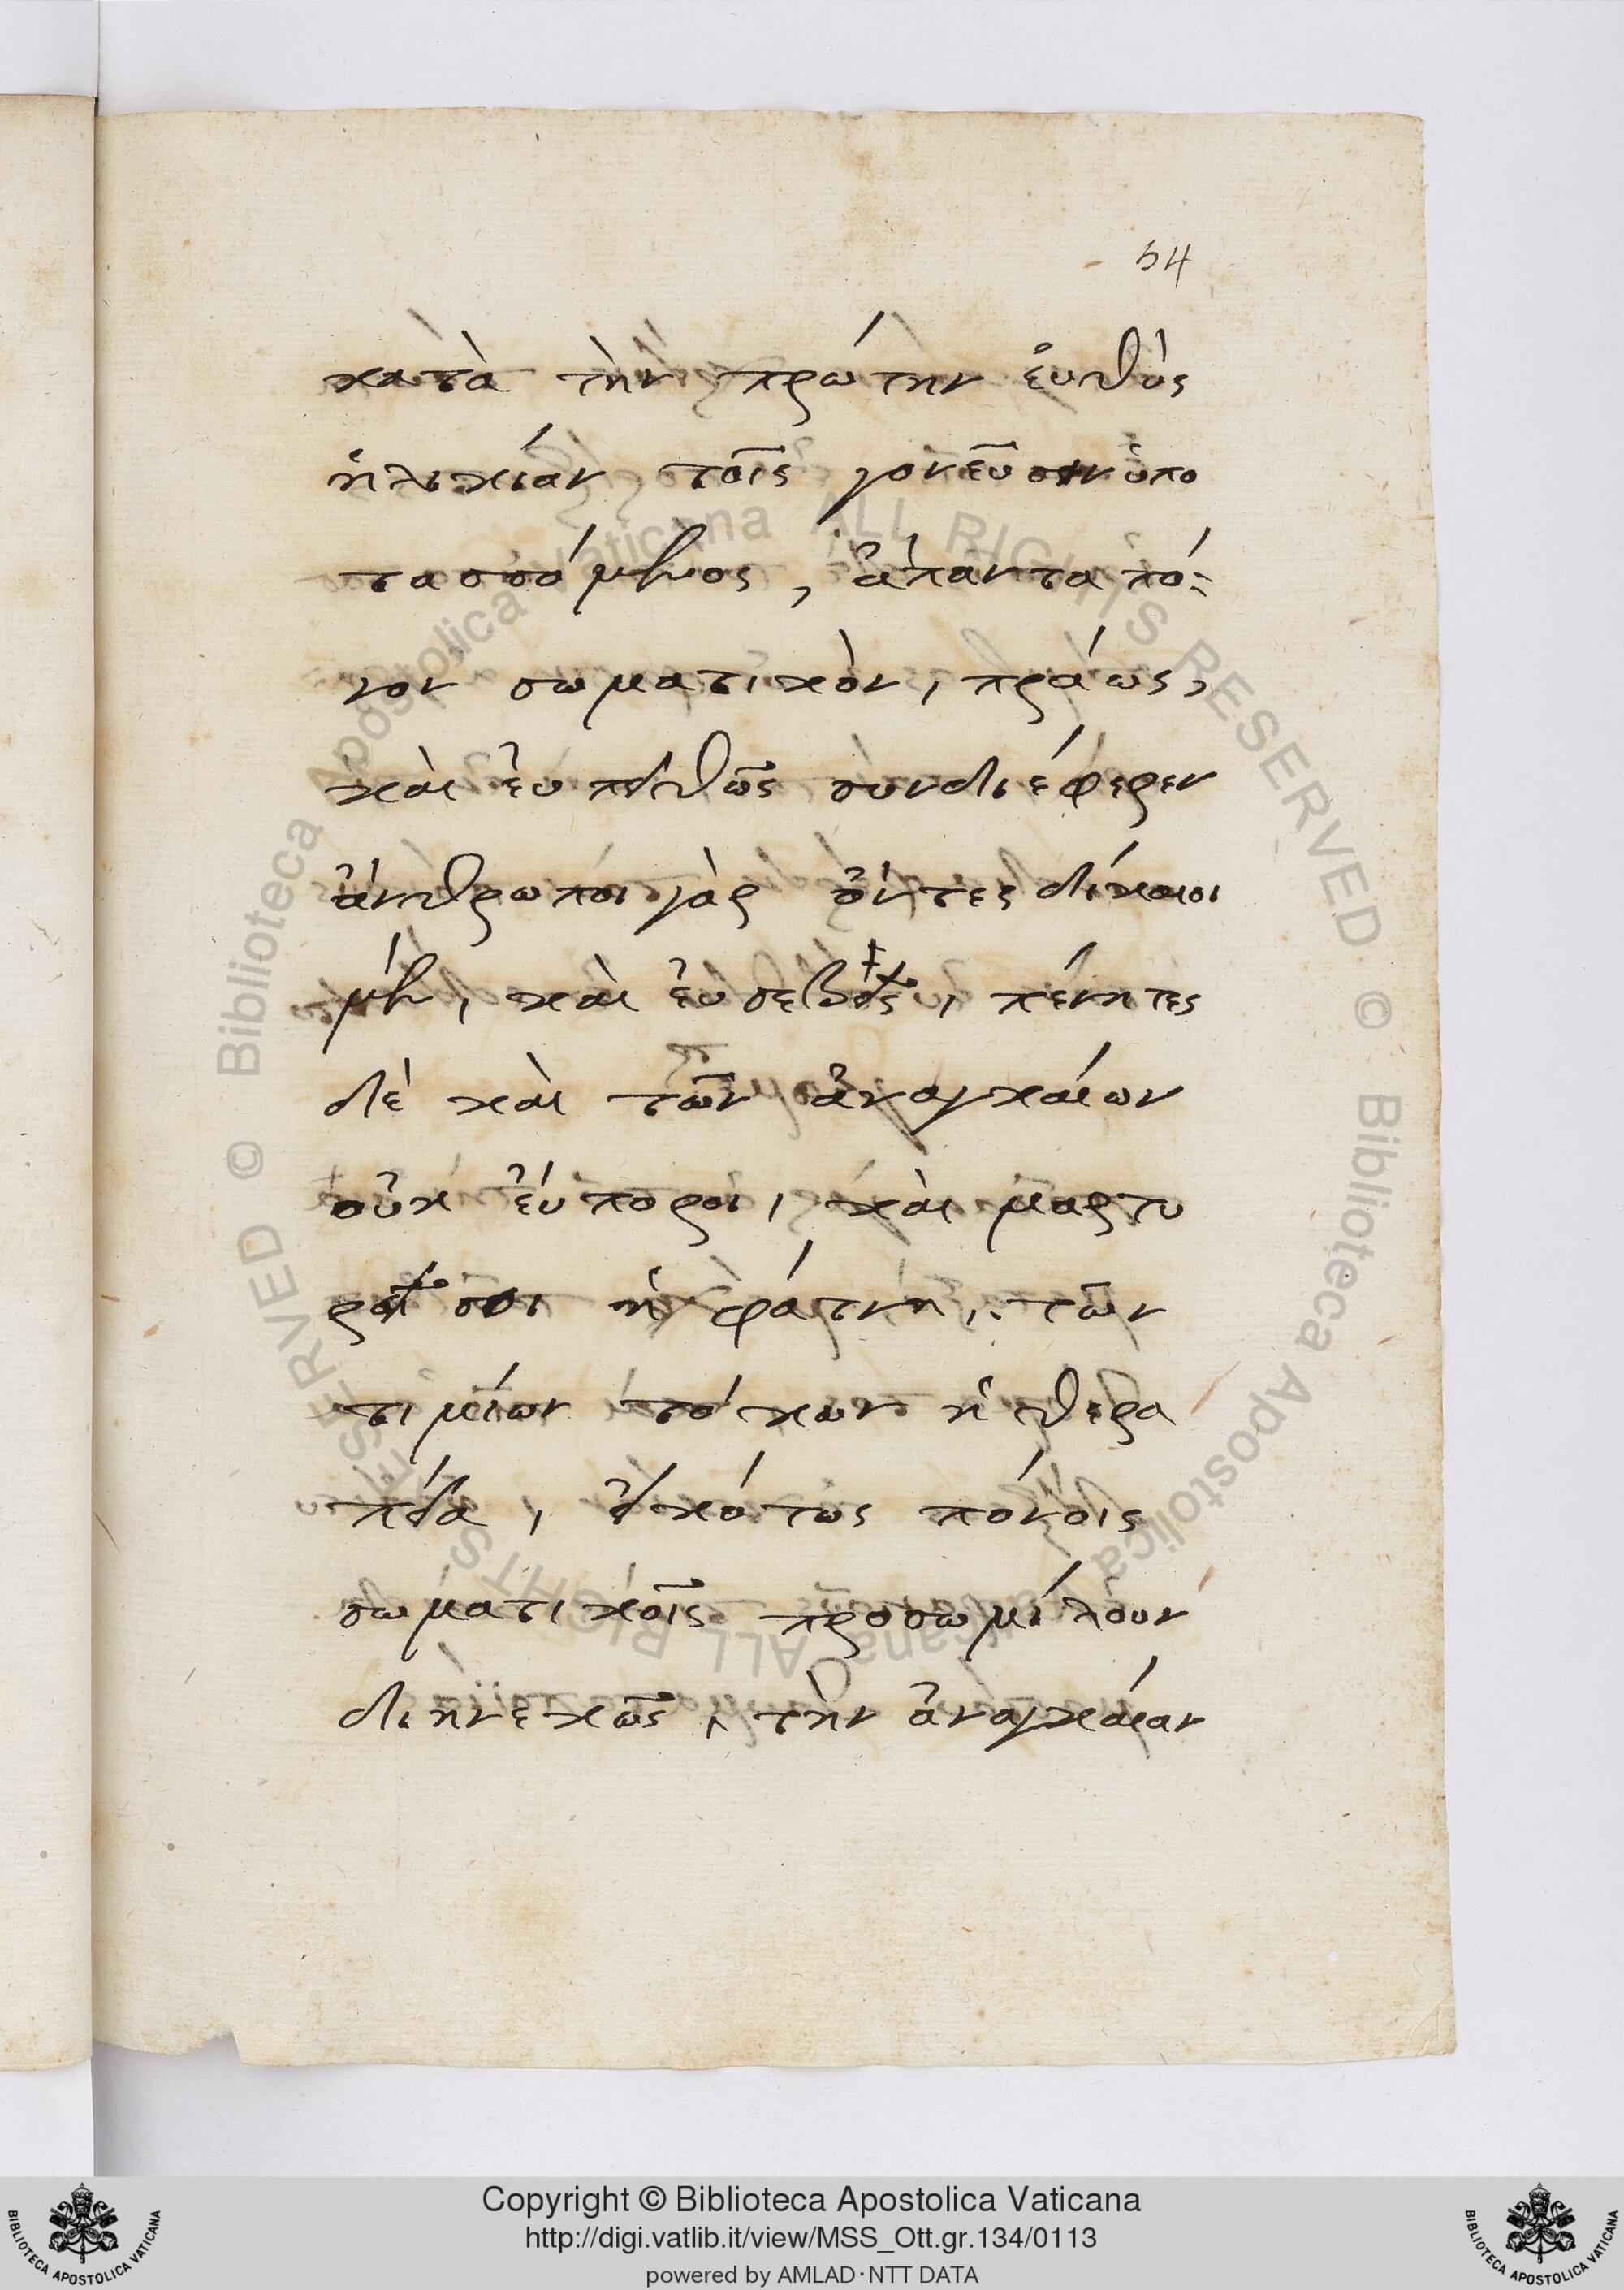 54
κατὰ τὴν πρώτην ἐυθὺς
ἡλικίαν τοῖς γονεῦσιν ὑπο
τασσόμενος, ἅπαντα πό-
νον σωματικὸν, πράως,
καὶ ἐυπειθῶς συνδιέφερεν
ἄνθρωποι γὰρ ὄντες δίκαιοι
μὲν, καὶ ἐυσεβεῖς, πένητες
δὲ καὶ τῶν ἀναγκαίων
οὐκ ἔυποροι, καὶ μαρτυ
ρεῖ σοι ἡ φάτνη, τῶν
τιμίων τόκων ἡ θερα
πεία, εἰκότως πόνοις
σωματικοῖς προσωμίλουν
διηνεκῶς, τὴν ἀναγκαίαν
Copyright © Biblioteca Apostolica Vaticana
http://digi.vatlib.it/view/MSS_Ott.gr.134/0113
powered by AMLAD·NTT DATA
BIBLIOTECA APOSTOLICA VATICANA
BIBLIOTECA APOSTOLICA VATICANA
© Biblioteca Apostolica Vaticana ALL RIGHTS RESERVED
© Biblioteca Apostolica Vaticana ALL RIGHTS RESERVED